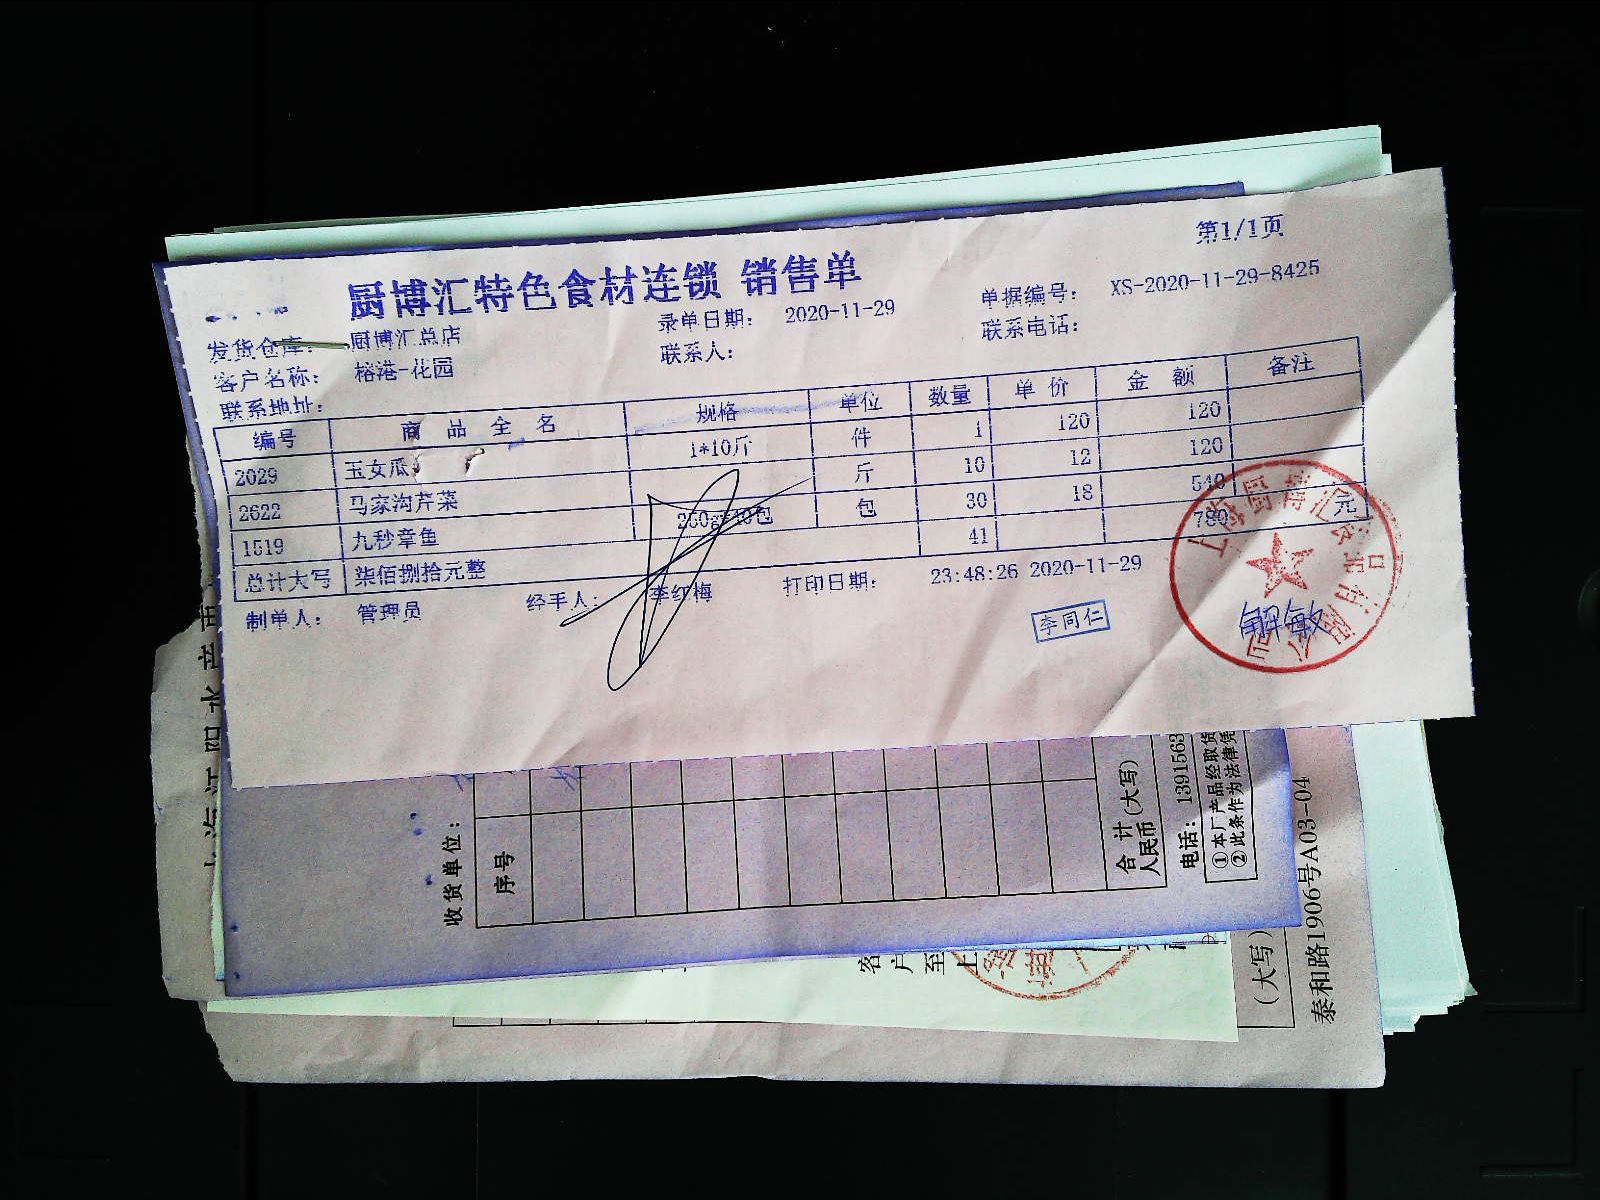 第1/1页
厨博汇特色食材连锁 销售单
发货仓库： 厨博汇总店 录单日期： 2020-11-29 单据编号： XS-2020-11-29-8425
客户名称： 榕港-花园 联系人： 联系电话：
联系地址：
编号 商品全名 规格 单位 数量 单价 金额 备注
2029 玉女瓜 1*10斤 件 1 120 120
2622 马家沟芹菜 斤 10 12 120
1519 九秒章鱼 包 30 18 540
总计大写 柒佰捌拾元整 41 780 元
制单人： 管理员 经手人： 李红梅 打印日期： 23:48:26 2020-11-29
李同仁
解敏
收货单位：
序号
合计
人民币(大写)
电话：1391563
①本厂产品经取货
②此条作为法律凭
客户至上
(大写)
泰和路1906号A03-04